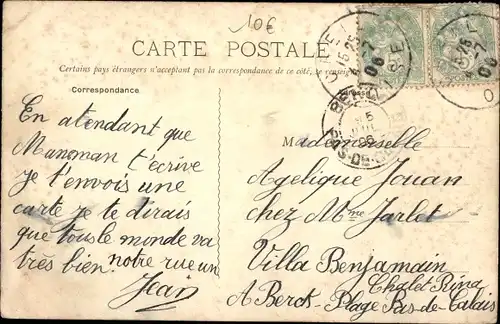 10€
CARTE POSTALE
Certains pays étrangers n'acceptent pas la correspondance de ce côté, se renseig
Correspondance
Adresse
En atendant que
Manman t'écrive
je t'envois une
carte je te dirais
que tous le monde va
très bien notre rue un
Jean
Mademoiselle
Agelique Jouan
chez Mme Jarlet
Villa Benjamain
Chalet Rina
A Berck-Plage Pas-de-Calais